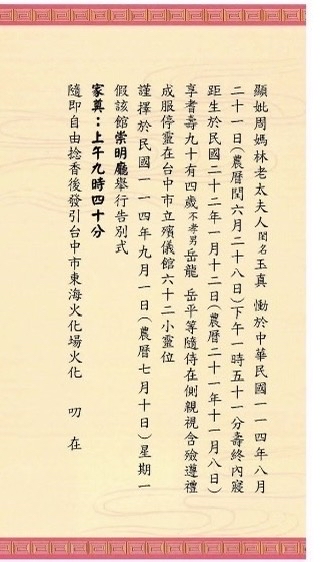 顯妣周媽林老太夫人閨名玉真 慟於中華民國一一四年八月
二十一日(農曆閏六月二十八日)下午一時五十一分壽終內寢
距生於民國二十二年一月十二日(農曆二十一年十一月八日)
享耆壽九十有四歲不孝男岳龍 岳平等隨侍在側親視含殮遵禮
成服停靈在台中市立殯儀館六十二小靈位
謹擇於民國一一四年九月一日(農曆七月十日)星期一
假該館崇明廳舉行告別式
家奠：上午九時四十分
隨即自由捻香後發引台中市東海火化場火化 叨 在